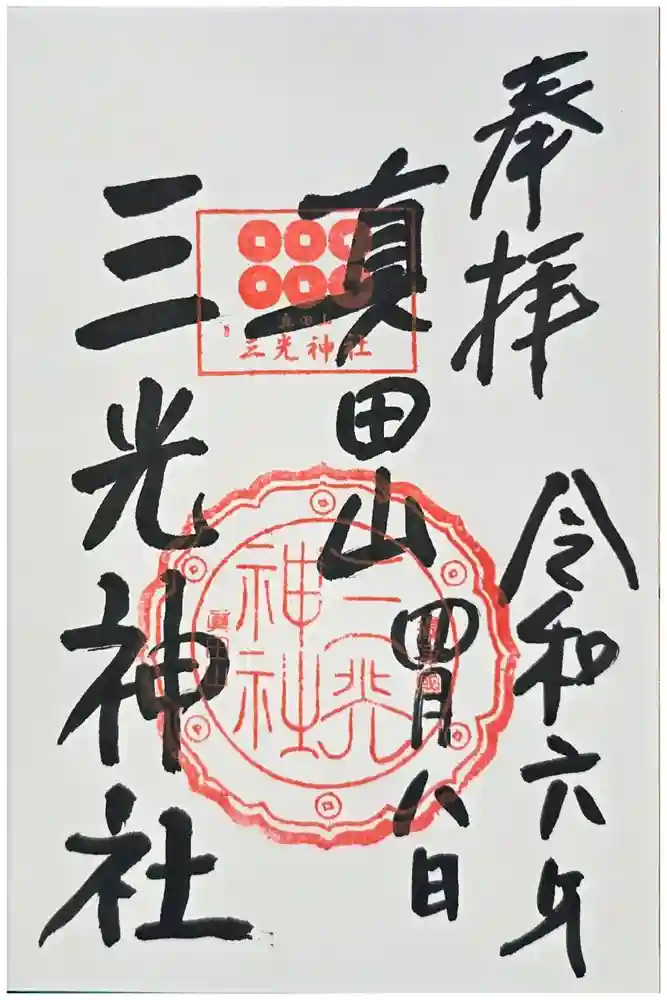 奉拝
令和六年
真田山
四月八日
三光神社
真田山
三光神社
三光
神社
眞田山